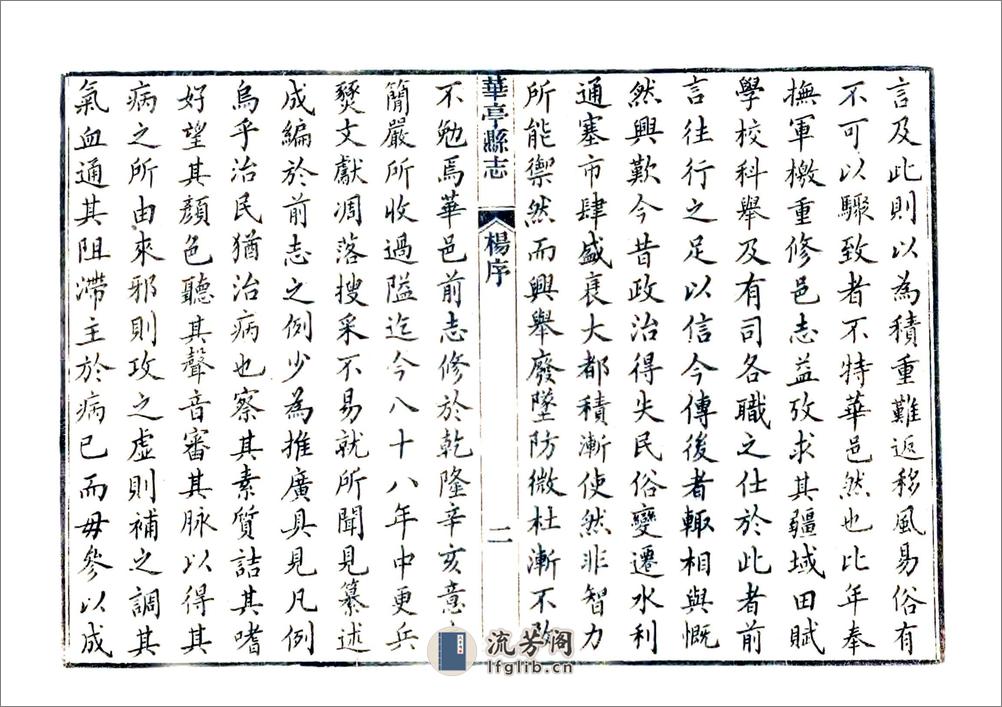 言及此則以為積重難返移風易俗有
不可以驟致者不特華邑然也比年奉
撫軍檄重修邑志益攷求其疆域田賦
學校科舉及有司各職之仕於此者前
言往行之足以信今傳後者輙相與慨
然興歎今昔政治得失民俗變遷水利
通塞市肆盛衰大都積漸使然非智力
所能禦然而興舉廢墜防微杜漸不敢
華亭縣志
楊序
二
不勉焉華邑前志修於乾隆辛亥意
簡嚴所收過隘迄今八十八年中更兵
燹文獻凋落搜采不易就所聞見纂述
成編於前志之例少為推廣具見凡例
烏乎治民猶治病也察其素質詰其嗜
好望其顏色聽其聲音審其脉以得其
病之所由來邪則攻之虛則補之調其
氣血通其阻滯主於病已而毋參以成
流芳阁
lfglib.cn